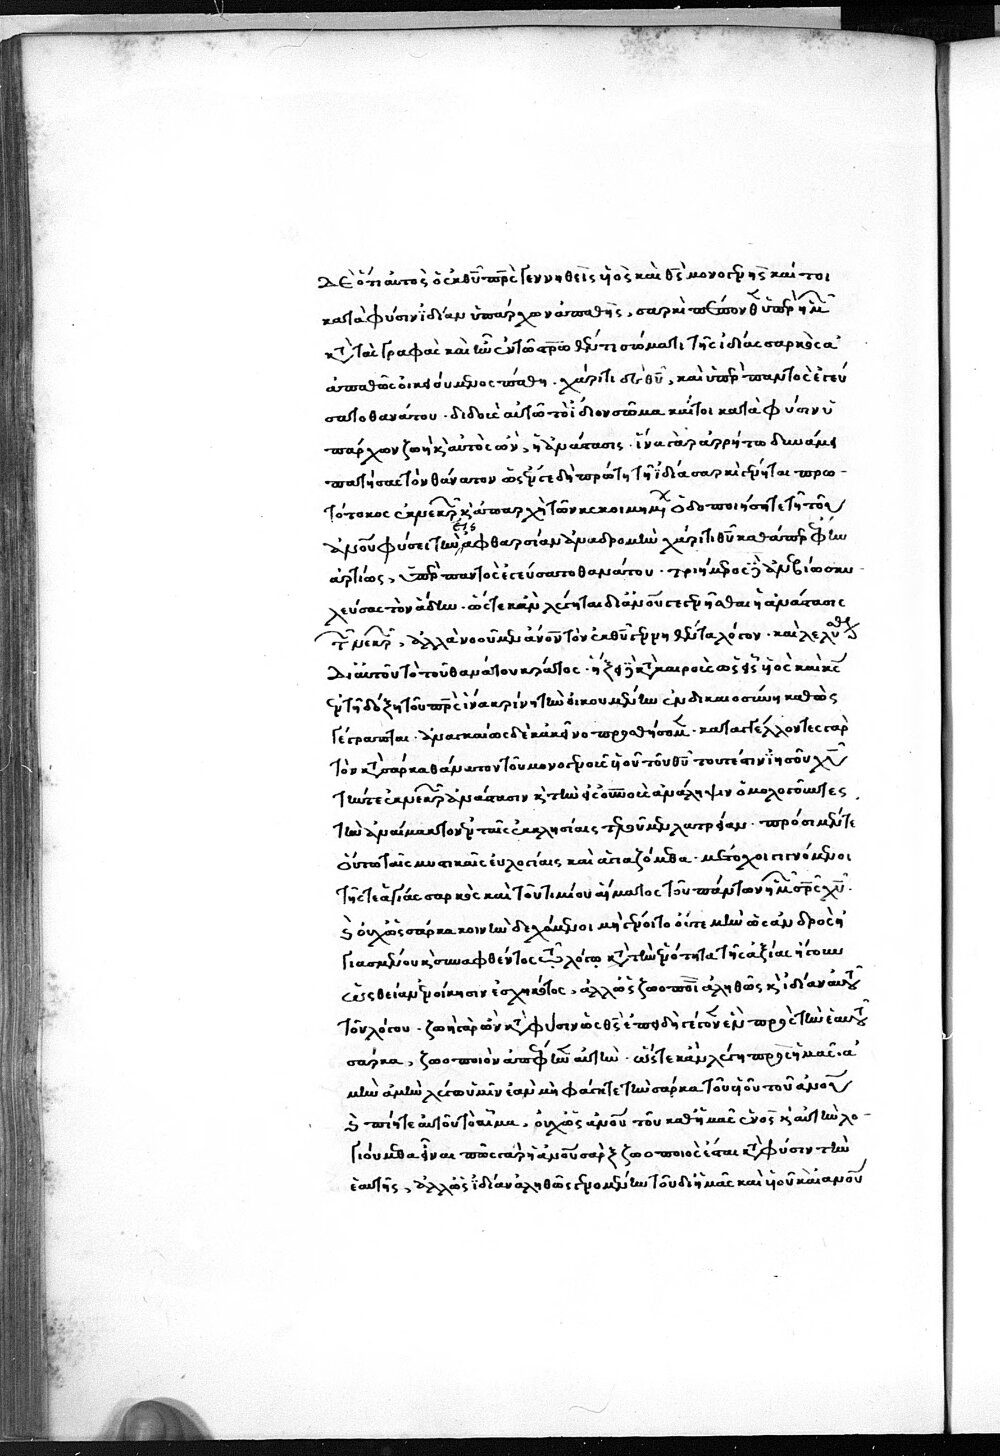 δὲ ὅτι αὐτὸς ὁ ἐκ θῡ πρ̅ς γεννηθεὶς ὑιὸς καὶ θς̅ μονογενὴς καί τοι
κατὰ φύσιν ἰδίαν ὑπάρχων ἀπαθὴς, σαρκὶ πέπονθ ὑπὲρ ἡμ
κτ τὰς γραφὰς καὶ ἦν ἐν τῶ στρω θέντι σώματι τῆς ἰδίας σαρκὸς ἀ
ἀπαθῶς οἰκειούμενος πάθη · χάριτι δὲ θῡ, καὶ ὑπὲρ παντὸς ἐγεύ
σατο θανάτου · διδοὺς αὐτῶ τὸ ἴδιον σῶμα καίτοι κατὰ φύσιν ὑ
πάρχων ζωὴ κ αὐτὸς ὢν, ἡ ἀνάστασις · ἵνα γὰρ ἀρρήτω δυνάμει
πατήσας τὸν θάνατον ὡς ἔν γε δὴ πρώτη τῆ ἰδία σαρκὶ γένηται πρω-
τότοκος ἐκ νεκρ κ ἀπαρχὴ τῶν κεκοιμημ ὁδοποιήση τε τῆ τοῦ
ἀνου φύσει τὴν εἰς ἀφθαρσίαν ἀναδρομὴν χάριτι θῡ καθάπερ ἔφην
ἀρτίως, ὑπὲρ παντὸς ἐγεύσατο θανάτου · τριήμερος δὲ ἀνεβίω σκυ-
λεύσας τὸν ἅδην · ὥστε κἂν λέγηται δι ἀνου γεγενῆσθαι ἡ ἀνάστασις
τ νεκρ, ἀλλὰ νοοῦμεν ἄνον τὸν ἐκ θῡ γεννηθέντα λόγον · καὶ λελύσθαι
δι αὐτοῦ τὸ τοῦ θανάτου κράτος · ἥξει δὲ κτ καιροὺς ὡς εἷς ὑιὸς καὶ κς
ἐν τῆ δόξη τοῦ πρ̅ς ἵνα κρίνη τὴν οἰκουμένην ἐν δικαιοσύνη καθὼς
γέγραπται · ἀναγκαίως δὲ κἀκεῖνο προσθήσομ · καταγγέλλοντες γὰρ
τὸν κτ σάρκα θάνατον τοῦ μονογενοῦς ὑιοῦ τοῦ θῡ τουτέστιν ἰησοῦ χῡ
τήν τε ἐκ νεκρ ἀνάστασιν κ τὴν εἰς οὐνοὺς ἀνάληψιν ὁμολογοῦντες
τὴν ἀναίμακτον ἐν ταῖς ἐκκλησίαις τελοῦμεν λατρείαν · πρόσιμέν τε
οὕτω ταῖς μυστικαῖς εὐλογίαις καὶ ἁγιαζόμεθα · μέτοχοι γινόμενοι
τῆς τε ἁγίας σαρκὸς καὶ τοῦ τιμίου αἵματος τοῦ πάντων ἡμ σρ̅ς χῡ ·
κ οὐχ ὡς σάρκα κοινὴν δεχόμενοι μὴ γένοιτο οὔτε μὴν ὡς ἀνδρὸς ἡ
γιασμένου κ συναφθέντος τῶ λόγω κτ τὴν ἑνότητα τῆς ἀξίας ἤγουν
ὡς θείαν ἐνοίκησιν ἐσχηκότος, ἀλλ ὡς ζωοποιὸν ἀληθῶς κ ἰδίαν αὐτοῦ
τοῦ λόγου · ζωὴ γὰρ ὢν κτ φύσιν ὡς θς̅ ἐπειδὴ γέγονεν ἓν πρὸς τὴν ἑαυτοῦ
σάρκα, ζωοποιὸν ἀπέφηνεν αὐτὴν · ὥστε κἂν λέγη πρὸς ἡμᾶς · ἀ
μὴν ἀμὴν λέγω ὑμῖν ἐὰν μὴ φάγητε τὴν σάρκα τοῦ ὑιοῦ τοῦ ἀνου
κ πίητε αὐτοῦ τὸ αἷμα, οὐχ ὡς ἀνου τοῦ καθ ἡμᾶς ἑνὸς κ αὐτὴν λο-
γιούμεθα εἶναι πῶς γὰρ ἡ ἀνου σὰρξ ζωοποιὸς ἔσται κτ φύσιν τὴν
ἑαυτῆς, ἀλλ ὡς ἰδίαν ἀληθῶς γενομένην τοῦ δι ἡμᾶς καὶ ὑιοῦ καὶ ἀνου